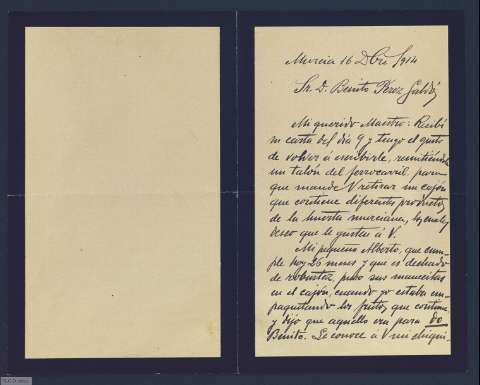 Murcia 16 Dbre 1914
Sr. D. Benito Pérez Galdós
Mi querido Maestro: Recibí
su carta del día 9 y tengo el gusto
de volver á escribirle, remitiéndole
un talón del ferrocarril, para
que mande V retirar un cajón
que contiene diferentes productos
de la huerta murciana, los cuales
deseo que le gusten á V.
Mi pequeño Alberto, que cum-
ple hoy 26 meses y que es dechado
de robustez puso sus manecitas
en el cajón, cuando yo estaba em-
paquetando los frutos que contiene
y dijo que aquello era para do
Benito. Le conoce á V mi chiqui-